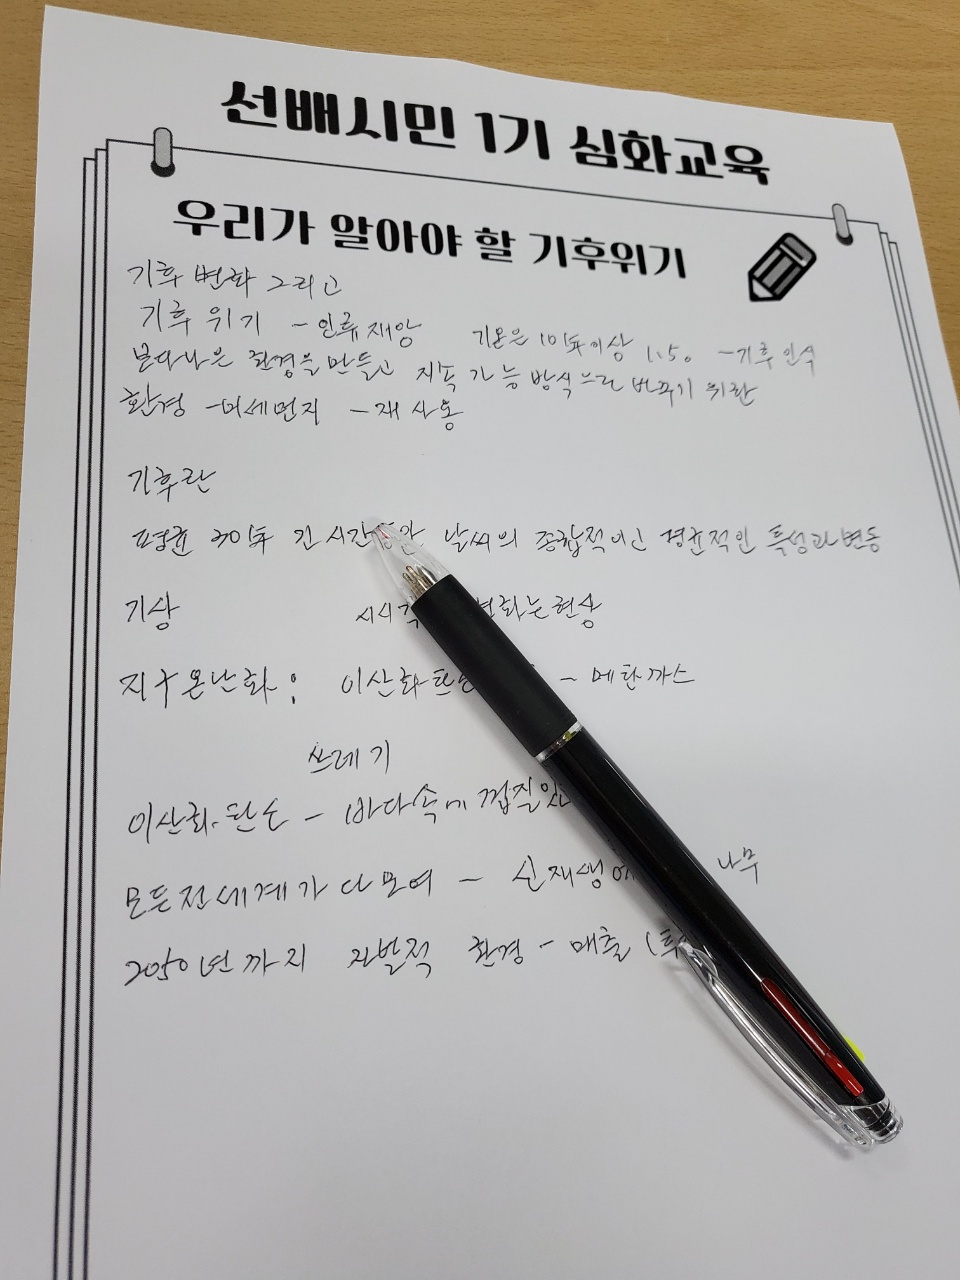 선배시민 1기 심화교육
우리가 알아야 할 기후위기
기후 변화 그리고
기후 위기 - 인류 재앙 기온은 10年 이상 1.5o -기후 인식
보다나은 환경을 만들고 지속 가능 방식으로 바꾸기 위한
환경 -미세먼지 -재사용
기후란
평균 30年 긴 시간동안 날씨의 종합적이인 평균적인 특성과 변동
기상 시시각 변화는현상
지구온난화: 이산화탄 - 메탄까스
쓰레기
이산화탄소 - 바다속에 껍질있
모든전세계가 다모여 - 신재생에 나무
2050년까지 자발적 환경 - 매출